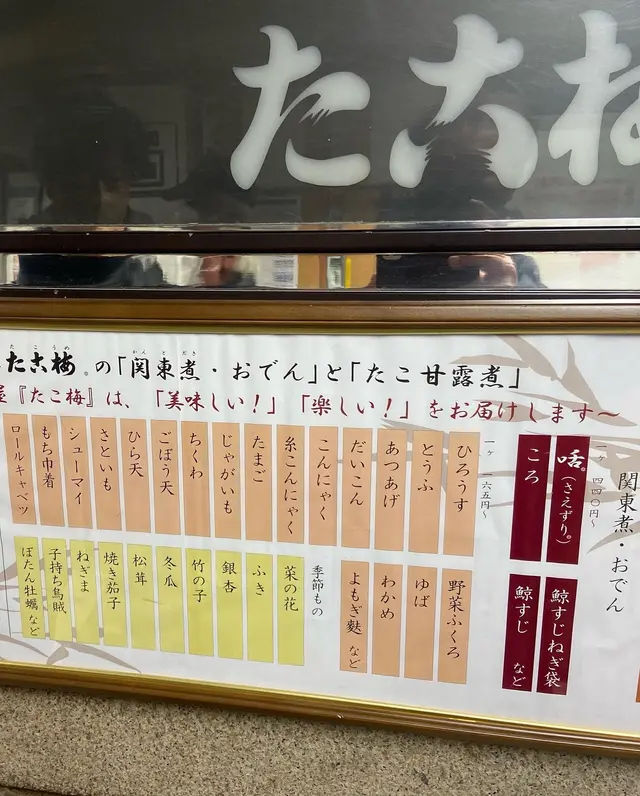 たこ梅
たこうめ
たこ梅。の「関東煮・おでん」と「たこ甘露煮」
かんとだき
屋『たこ梅』は、「美味しい!」「楽しい!」をお届けします～
関東煮・おでん
一ヶ 四四〇円～
鯨すじねぎ袋
鯨すじ など
咶。(さえずり。)
ころ
一ヶ 一六五円～
ひろうす
とうふ
あつあげ
だいこん
こんにゃく
糸こんにゃく
たまご
じゃがいも
ちくわ
ごぼう天
ひら天
さといも
シューマイ
もち巾着
ロールキャベツ
野菜ふくろ
ゆば
わかめ
よもぎ麩 など
季節もの
菜の花
ふき
銀杏
竹の子
冬瓜
松茸
焼き茄子
ねぎま
子持ち烏賊
ぼたん牡蠣 など